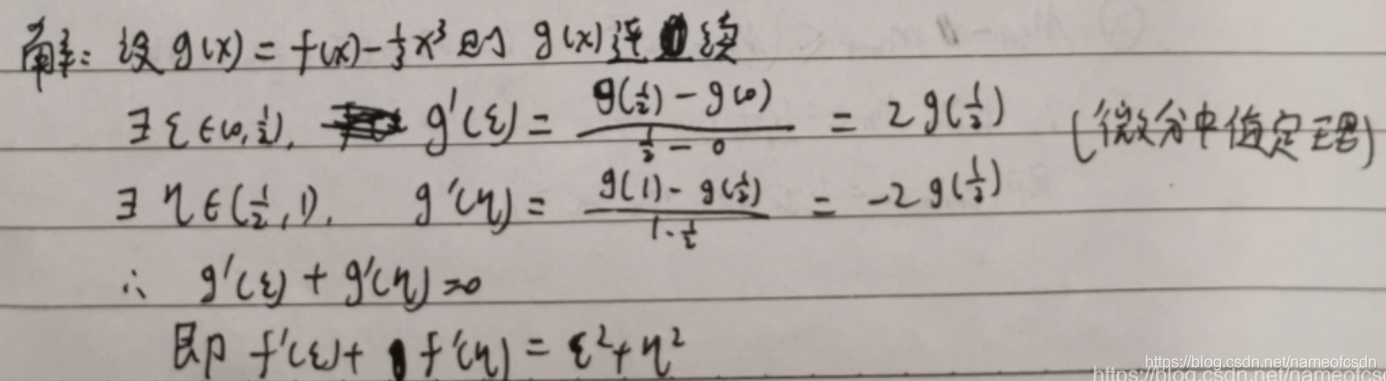 解: 设 g(x) = f(x) - 1/3 x³ 则 g(x) 连续
∃ ξ ∈ (0, 1/2), g'(ξ) = (g(1/2) - g(0)) / (1/2 - 0) = 2g(1/2) (微分中值定理)
∃ η ∈ (1/2, 1), g'(η) = (g(1) - g(1/2)) / (1 - 1/2) = -2g(1/2)
∴ g'(ξ) + g'(η) = 0
即 f'(ξ) + f'(η) = ξ² + η²
https://blog.csdn.net/nameofcsdn
https://blog.csdn.net/nameofcs